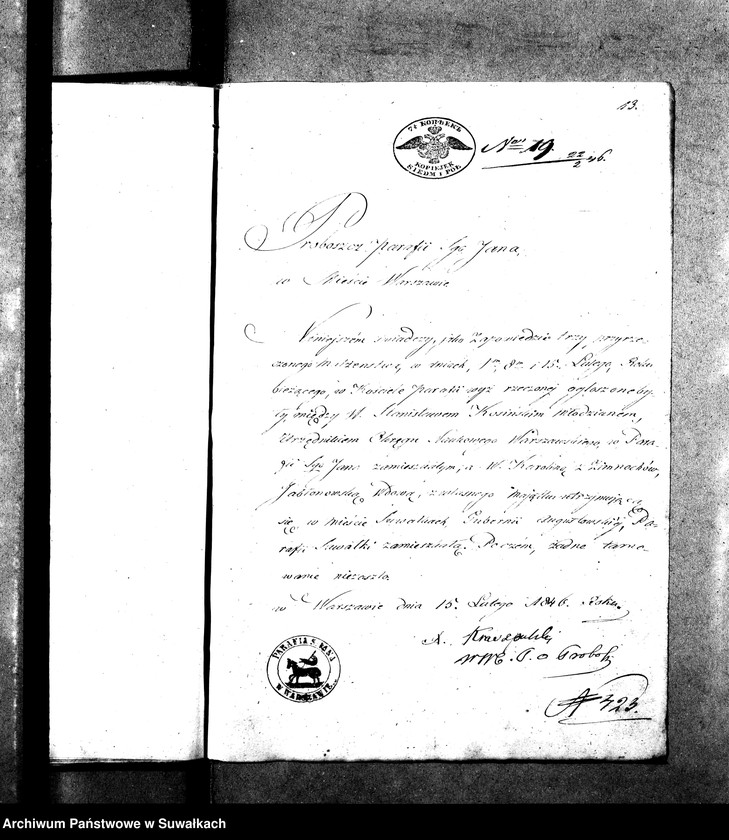 13.
7½ КОПѢЕКЪ
KOPIEJEK
SIEDM I PÓŁ
Nr 19. 22/2 46.
Proboszcz parafii Sgo Jana
w Mieście Warszawie
Niniejszém świadczy, jako Zapowiedzie trzy, przyrze-
czonego Małżeństwa, w dniach, 1m, 8m i 15. Lutego, Roku
bieżącego, w Kościele parafii wyż rzeczonej ogłoszone by-
ły, między W. Stanisławem Kosińskim młodzianem,
Urzędnikiem Okręgu Naukowego Warszawskiego, w Para-
fii Sgo Jana zamieszkałym; a W. Karoliną z Zimnochów,
Jabłonowską Wdową, z własnego majątku utrzymującą
się, w mieście Suwałkach Gubernii Augustowskiéj, Pa-
rafii Suwałki zamieszkałą. Poczém, żadne tamo-
wanie niezaszło.
w Warszawie dnia 15. Lutego 1846. Roku.
X.
P. o Probosz
PARAFIA S. JANA
W WARSZAWIE
N 323.
Archiwum Państwowe w Suwałkach